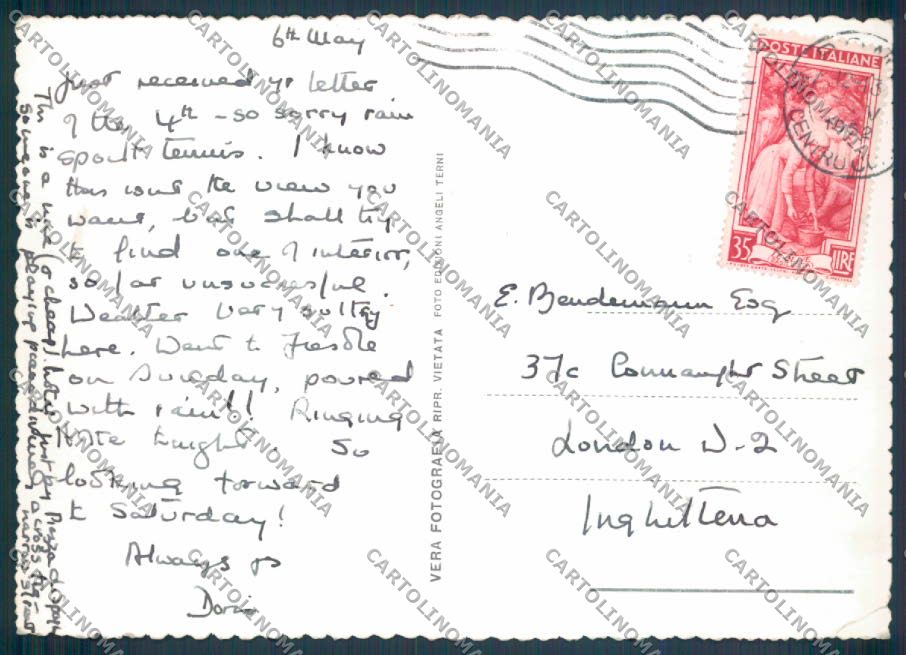 6th May
Just received yr letter
of the 4th - so sorry rain
spoilt tennis. I know
this isn't the view you
want, but shall try
to find one of interior,
so far unsuccessful.
Weather very sultry
here. Went to Fiesole
on Sunday, poured
with rain!! Ringing
Kate tonight So
looking forward
to Saturday!
Always yrs
Doris
This is a nice (& cheap) hotel just by Piazza di Spagna
Someone is playing piano divinely across the
narrow street
VERA FOTOGRAFIA RIPR. VIETATA FOTO EDIZIONI ANGELI TERNI
POSTE ITALIANE
35 LIRE
CENTRO
E. Bendemann Esq
37c Connaught Street
London W-2
Inghilterra
CARTOLINOMANIA